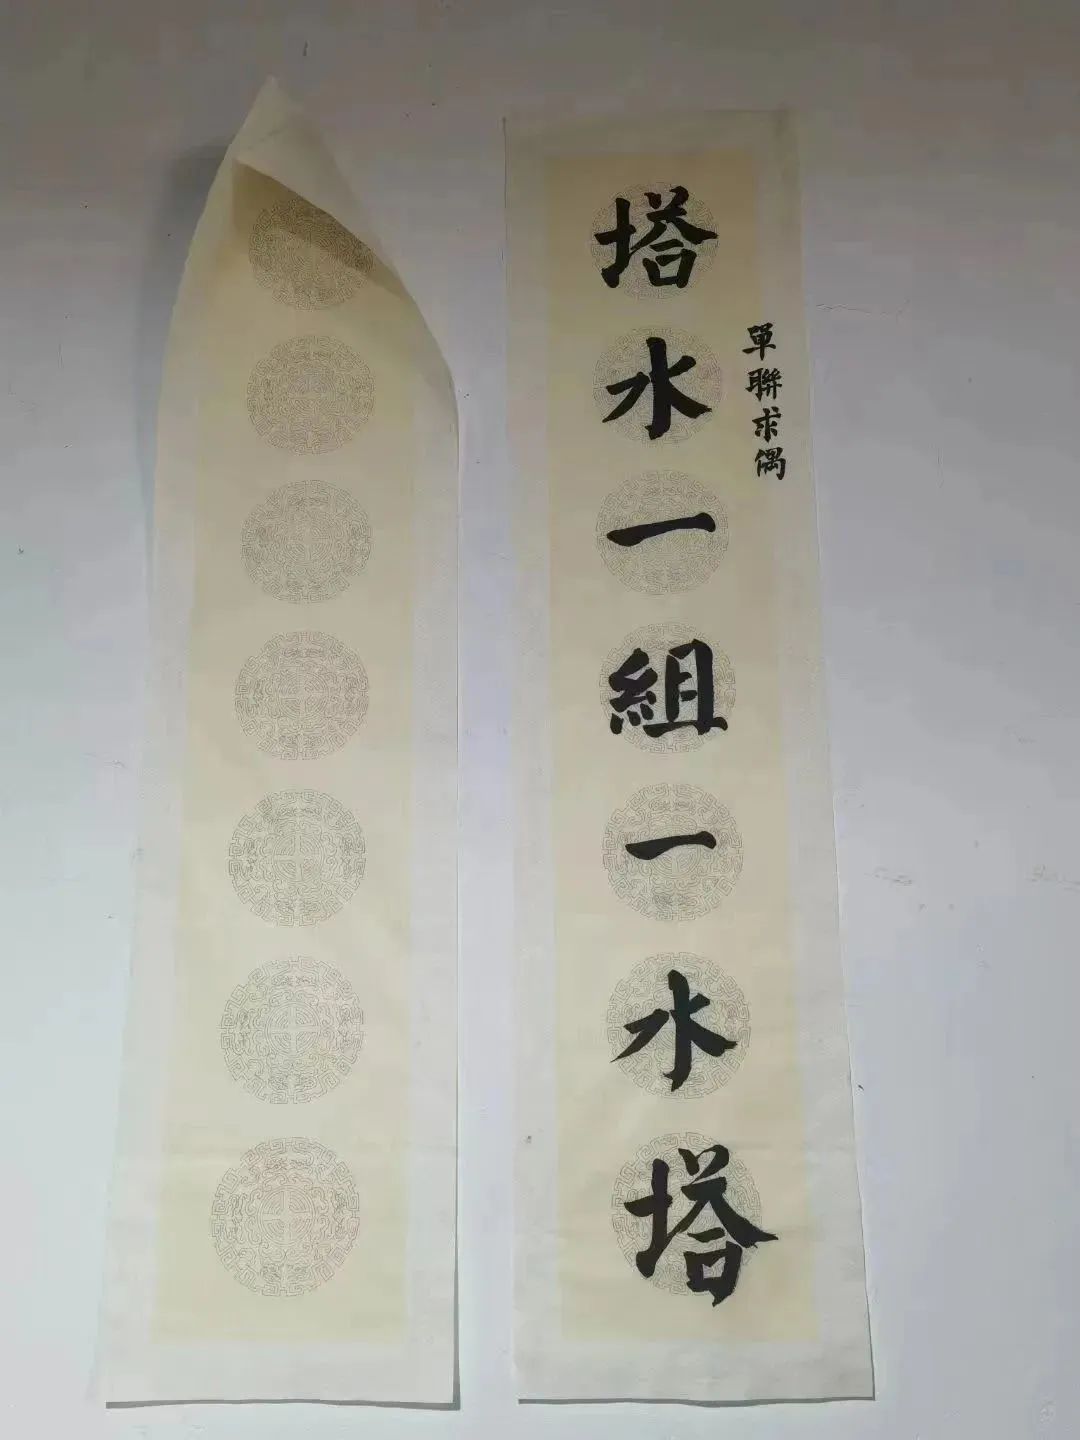 單聯求偶
塔水一組一水塔